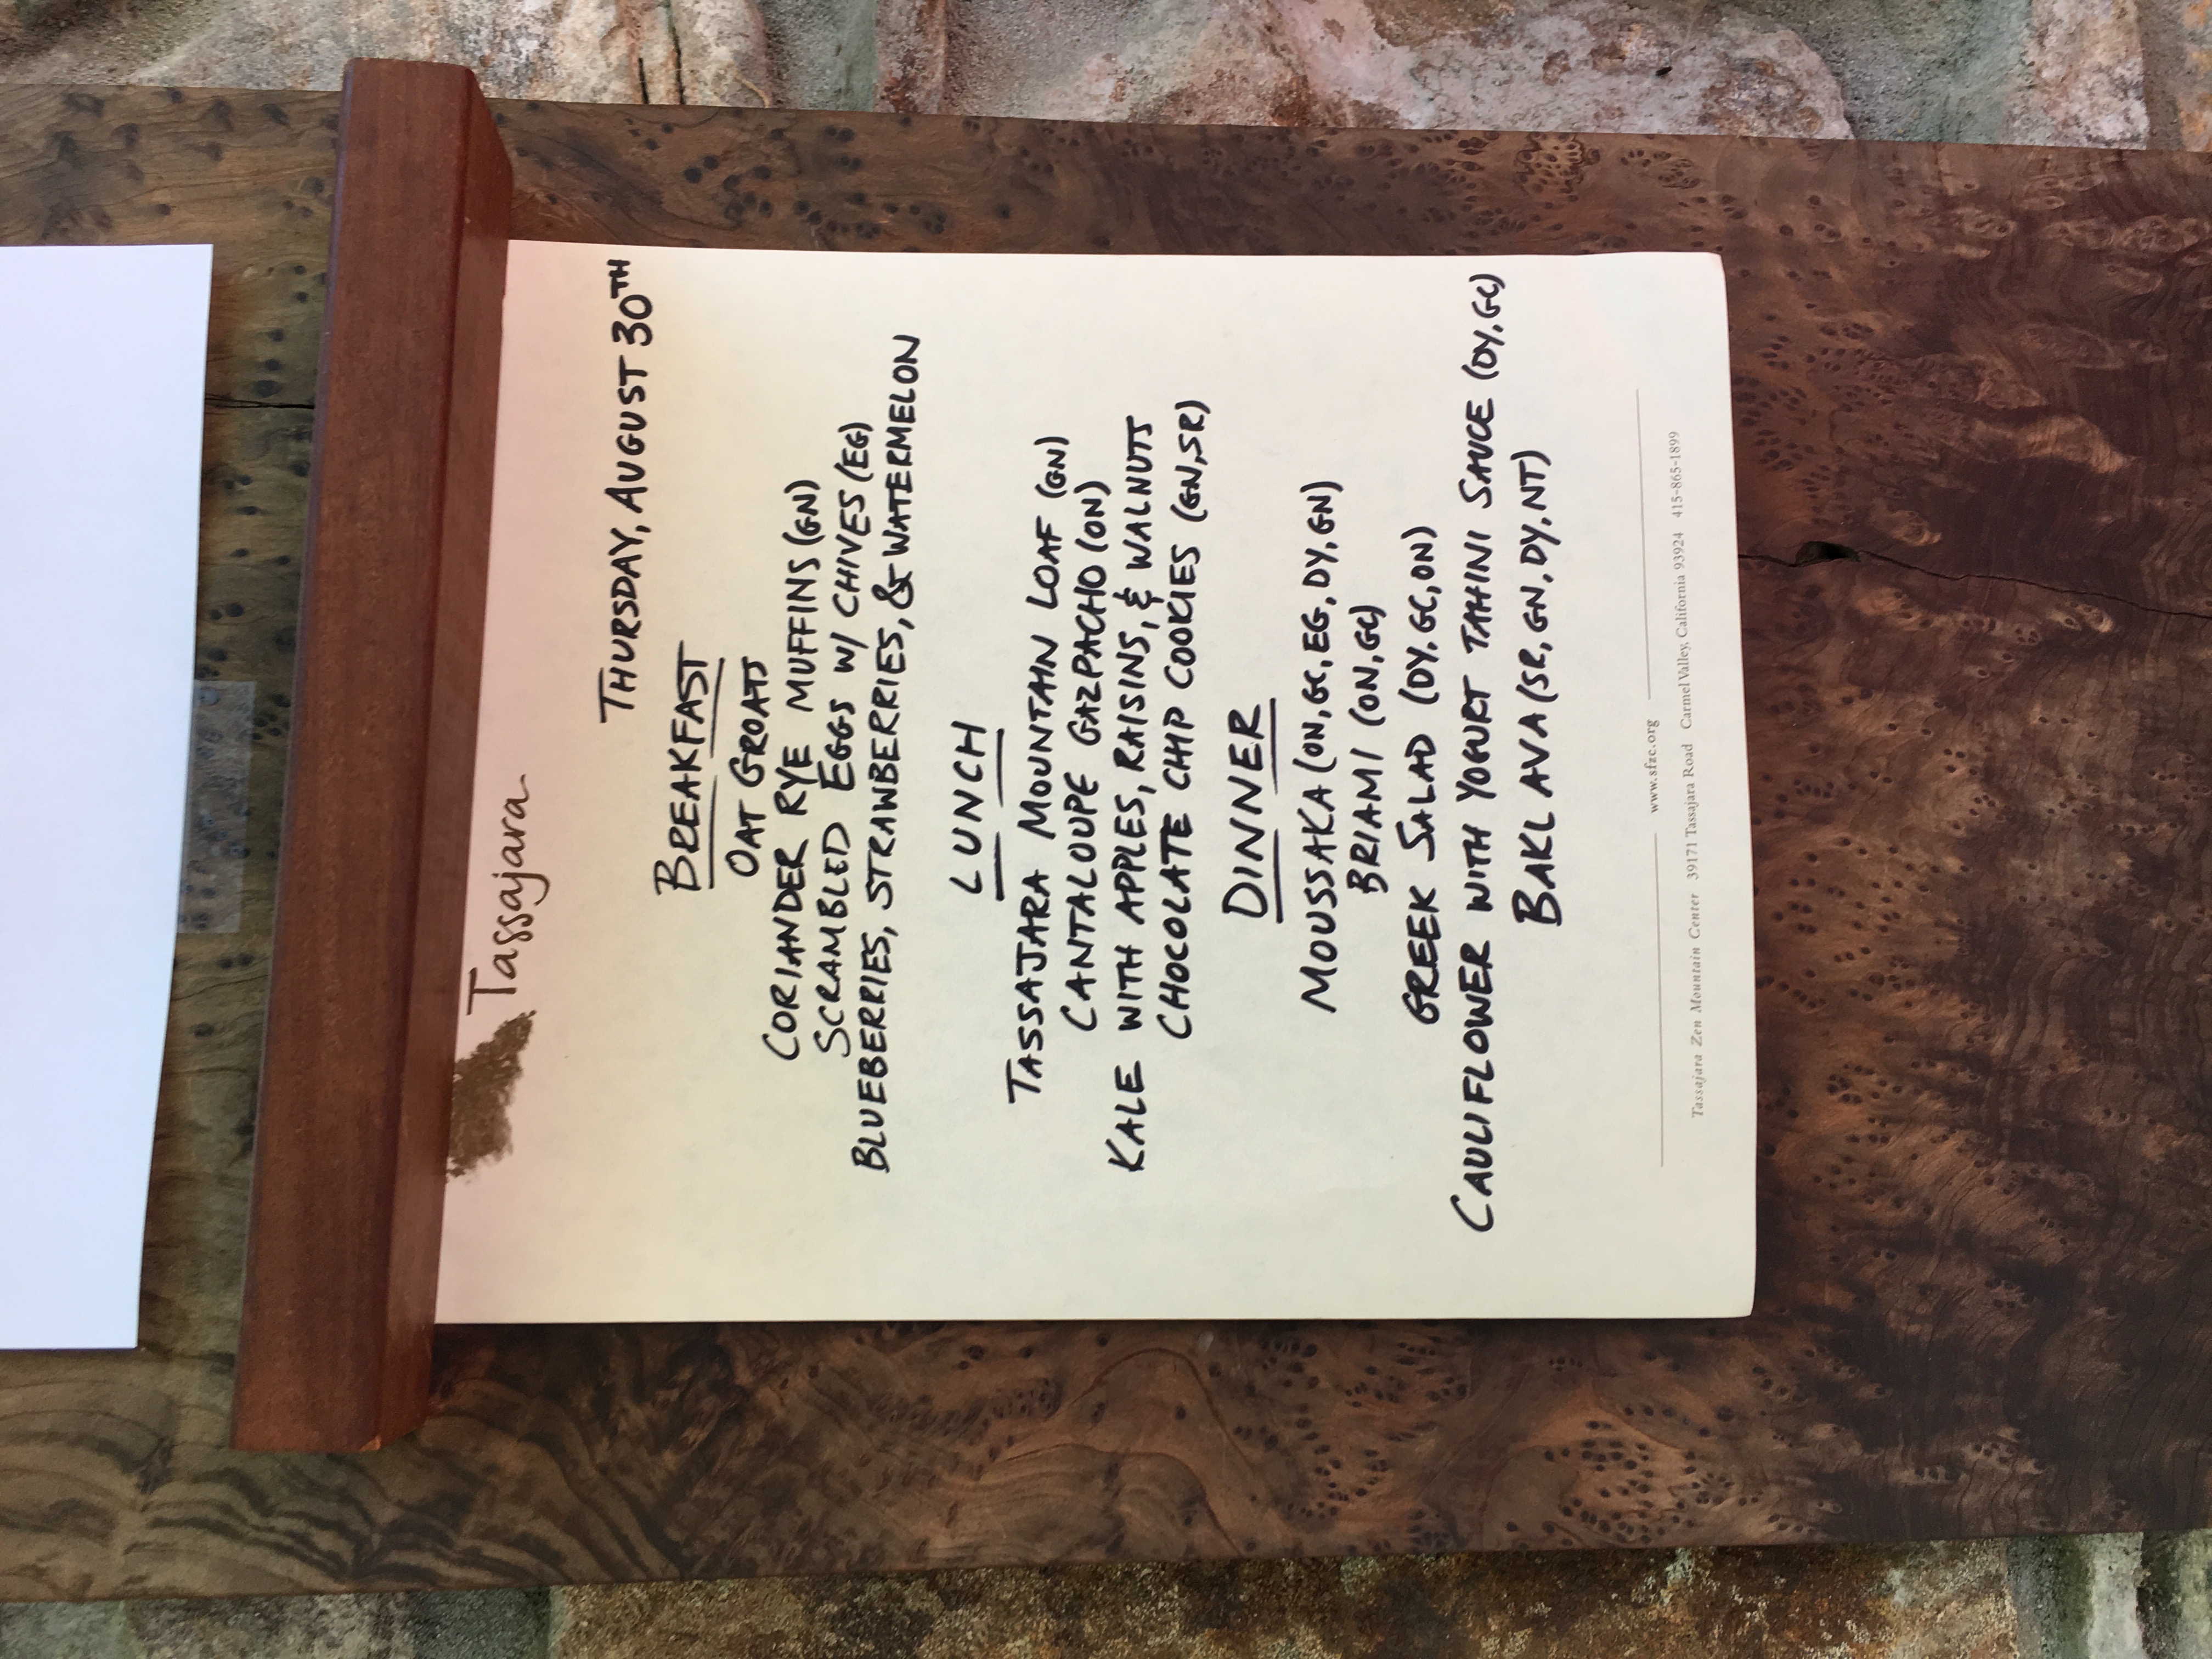 Tassajara
THURSDAY, AUGUST 30TH
BREAKFAST
OAT GROATS
CORIANDER RYE MUFFINS (GN)
SCRAMBLED EGGS W/ CHIVES (EG)
BLUEBERRIES, STRAWBERRIES, & WATERMELON
LUNCH
TASSAJARA MOUNTAIN LOAF (GN)
CANTALOUPE GAZPACHO (ON)
KALE WITH APPLES, RAISINS, & WALNUTS
CHOCOLATE CHIP COOKIES (GN, SR)
DINNER
MOUSSAKA (ON, GC, EG, DY, GN)
BRIAMI (ON, GC)
GREEK SALAD (DY, GC, ON)
CAULIFLOWER WITH YOGURT TAHINI SAUCE (DY, GC)
BAKLAVA (SR, GN, DY, NT)
www.sfzc.org
Tassajara Zen Mountain Center 39171 Tassajara Road Carmel Valley, California 93924 415-865-1899